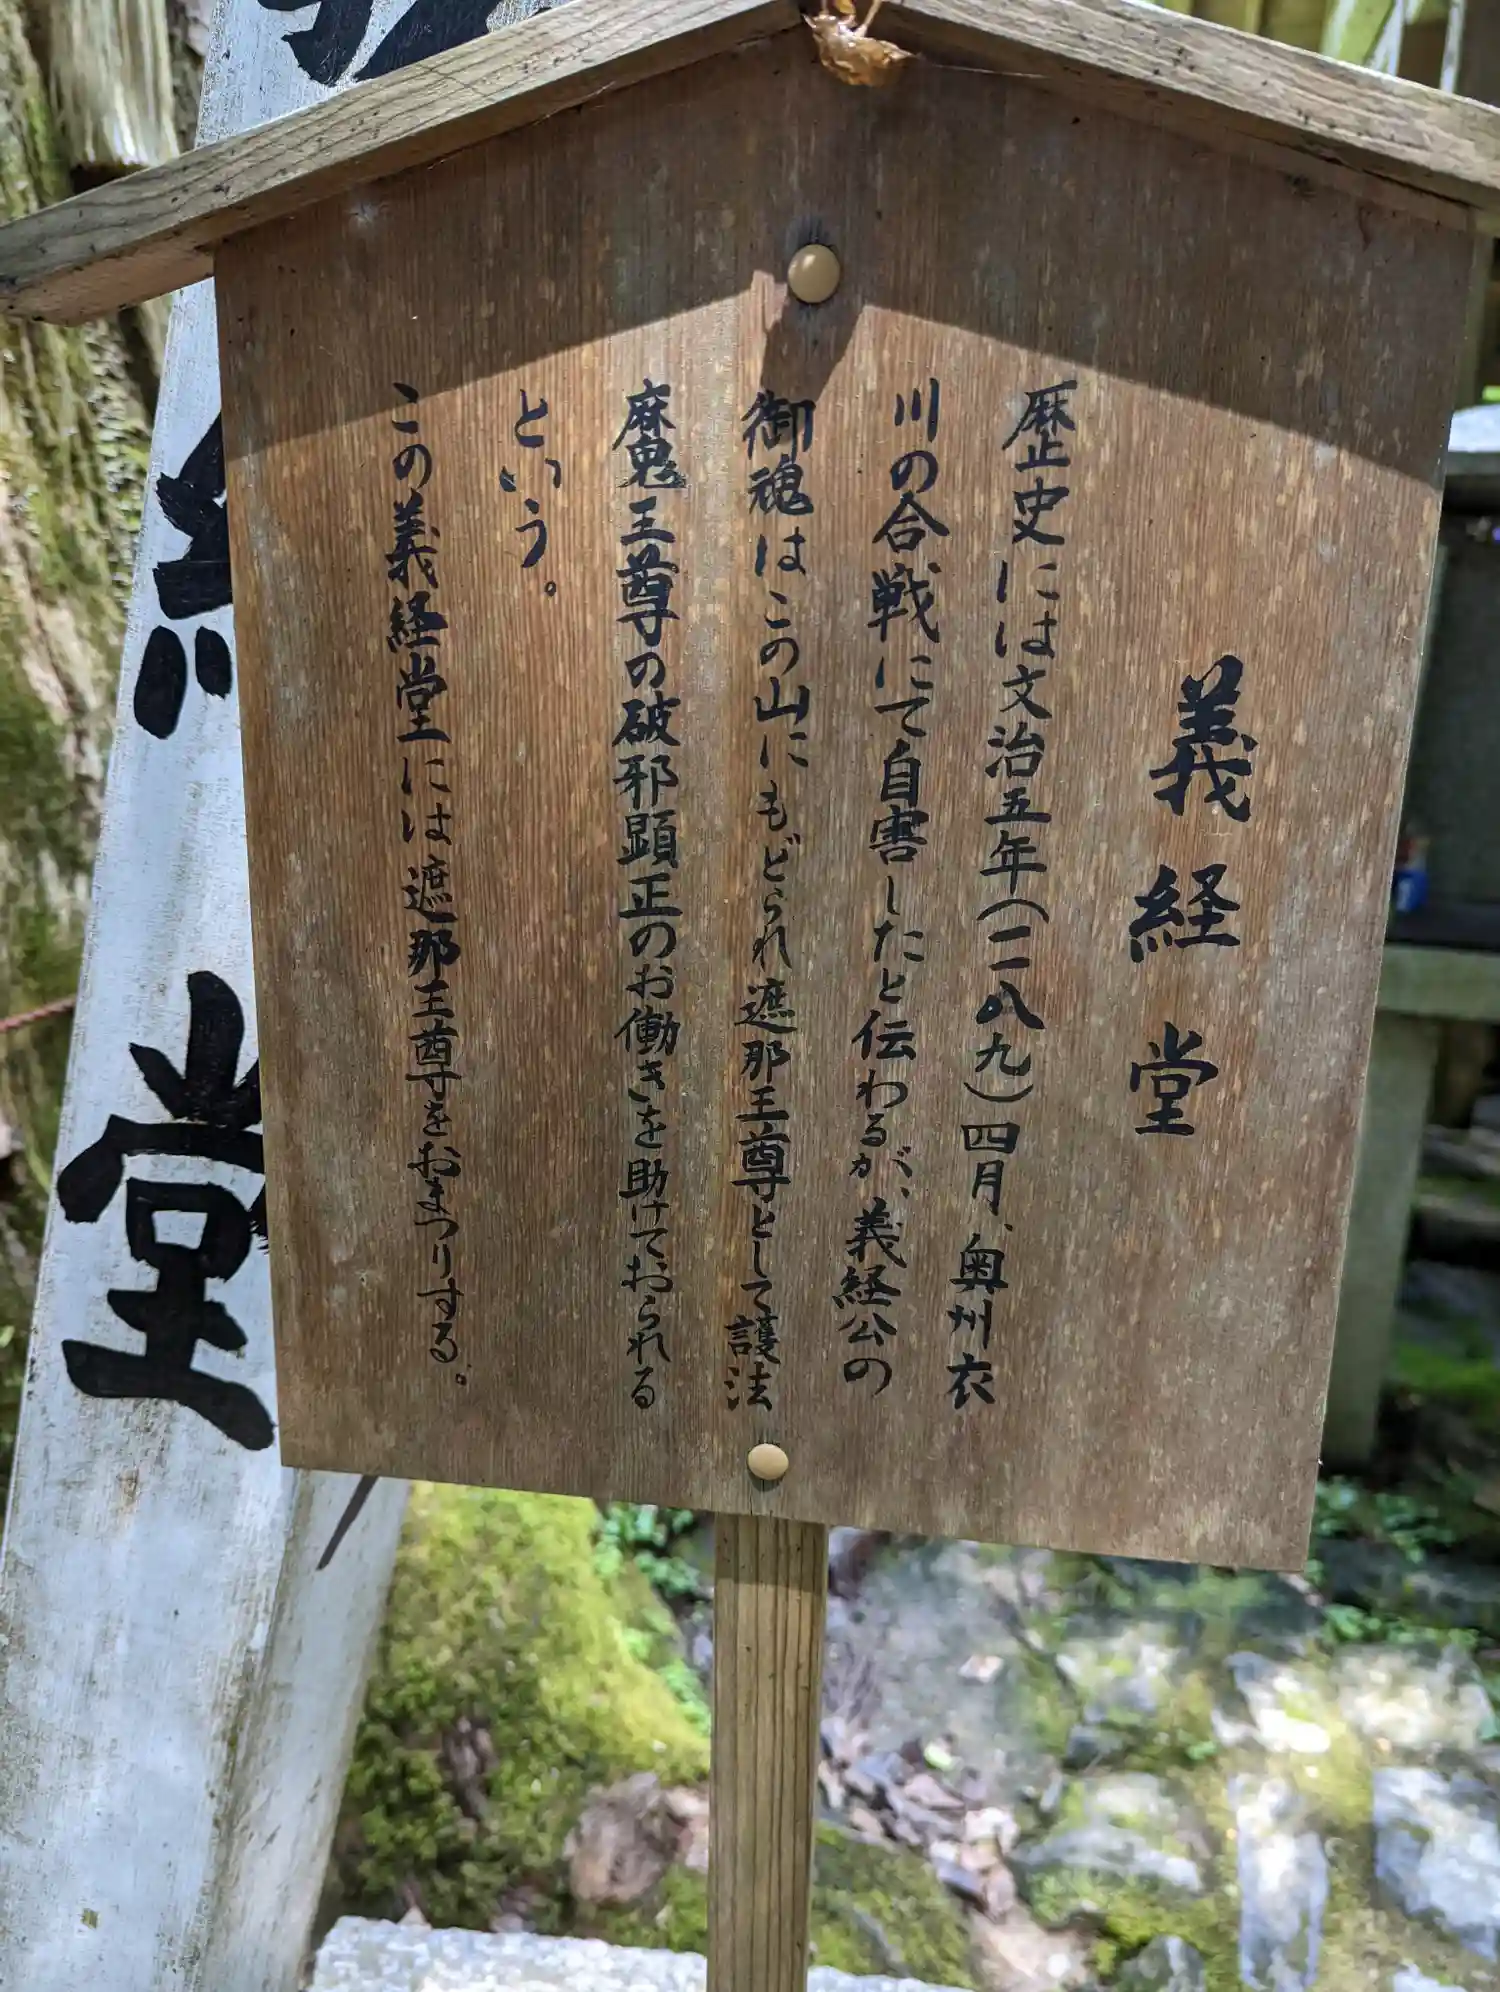 義経堂
歴史には文治五年(一一八九)四月、奥州衣
川の合戦にて自害したと伝わるが、義経公の
御魂はこの山にもどられ遮那王尊として護法
魔王尊の破邪顕正のお働きを助けておられる
という。
この義経堂には遮那王尊をおまつりする。
経
堂